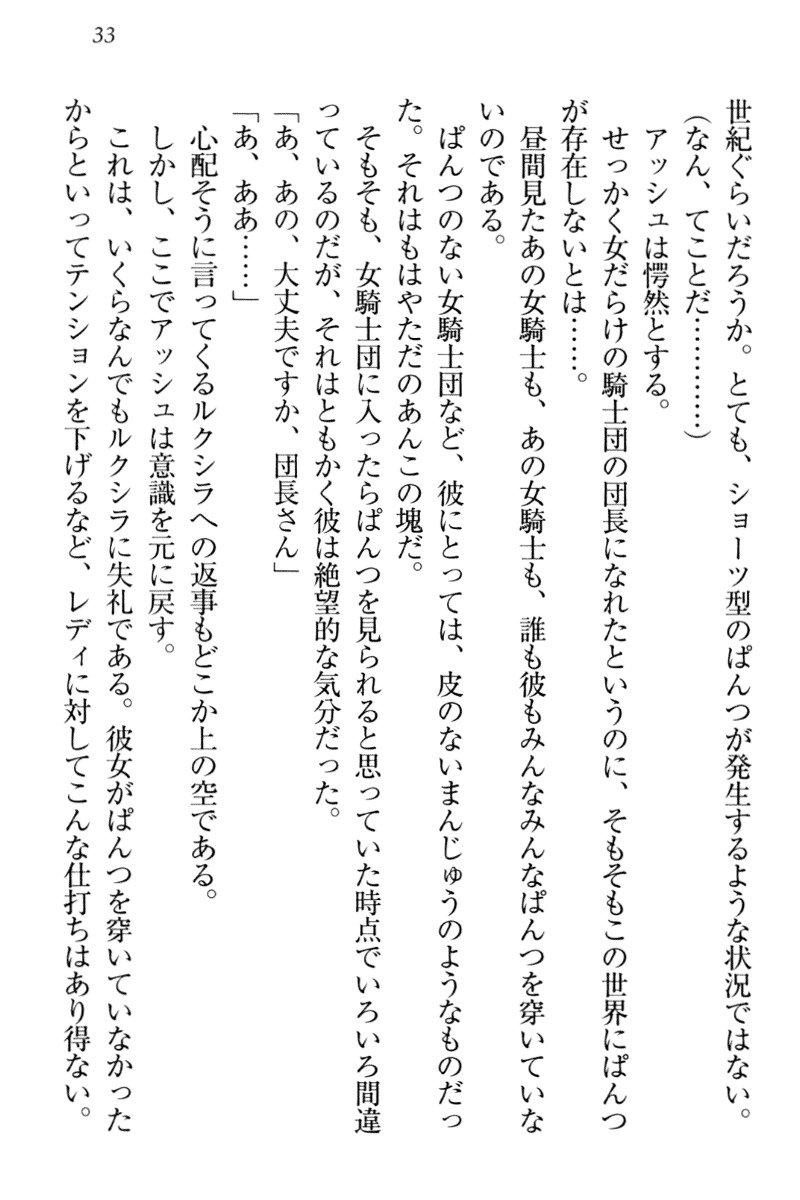 33
世紀ぐらいだろうか。とても、ショーツ型のぱんつが発生するような状況ではない。
(なん、てことだ…………)
アッシュは愕然とする。
せっかく女だらけの騎士団の団長になれたというのに、そもそもこの世界にぱんつ
が存在しないとは……。
昼間見たあの女騎士も、あの女騎士も、誰も彼もみんなみんなぱんつを穿いていな
いのである。
ぱんつのない女騎士団など、彼にとっては、皮のないまんじゅうのようなものだっ
た。それはもはやただのあんこの塊だ。
そもそも、女騎士団に入ったらぱんつを見られると思っていた時点でいろいろ間違
っているのだが、それはともかく彼は絶望的な気分だった。
「あ、あの、大丈夫ですか、団長さん」
「あ、ああ……」
心配そうに言ってくるルクシラへの返事もどこか上の空である。
しかし、ここでアッシュは意識を元に戻す。
これは、いくらなんでもルクシラに失礼である。彼女がぱんつを穿いていなかった
からといってテンションを下げるなど、レディに対してこんな仕打ちはあり得ない。